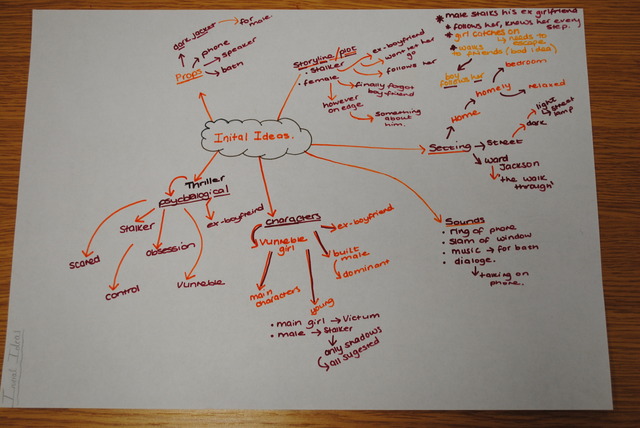 dark jacket → for male
phone
speaker
Props
bath
Storyline/plot
• Stalker
ex-boyfriend
wont let her go
follows her
• female
finally forgot boyfriend
however on edge
something about him.
* male stalks his ex girlfriend
* follows her, knows her every step.
* girl catches on
needs to escape
* walks to friends (bad idea)
boy follows her
Inital Ideas.
Setting
Home
homely
bedroom
relaxed
Street
light
street lamp
dark
Ward Jackson
"the walk through"
Thriller
psychological
Stalker
ex-boyfreind
scared
control
obsession
Vunrable
Characters
Vunrable girl
ex-boyfriend
built male
dominant
main characters
young
• main girl → Victum
• male → Stalker
only shadows
all sugested
Sounds
• ring of phone
• slam of window
• music → for bath
• dialoge.
talking on phone.
Inital Ideas